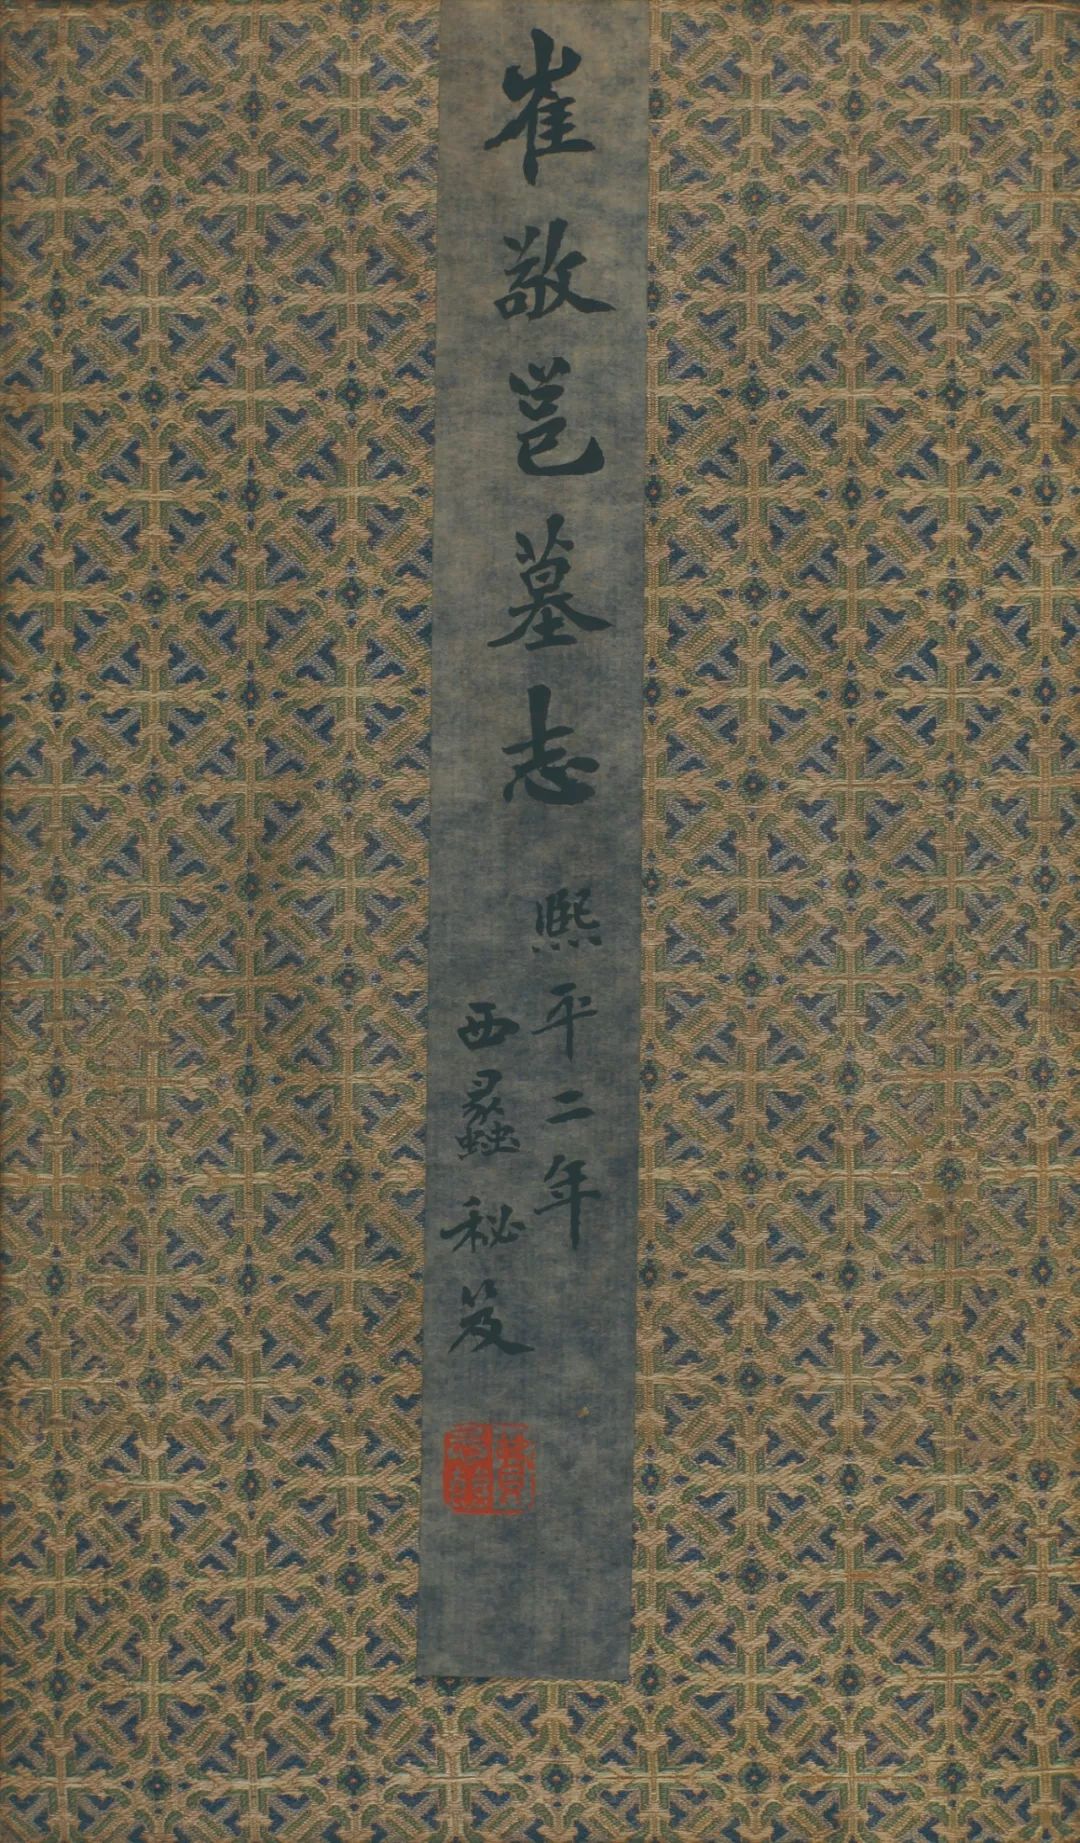 崔敬邕墓志
熙平二年
西蠡秘笈